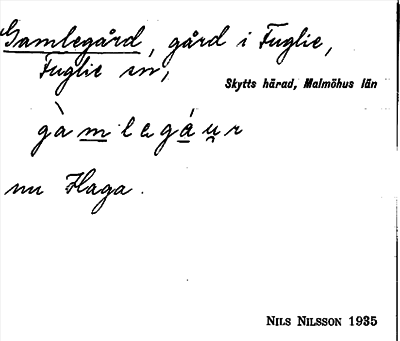 Gamlegård, gård i Fuglie,
Fuglie sn,
Skytts härad, Malmöhus län
gàmlegáu̯r
nu Haga.
NILS NILSSON 1935